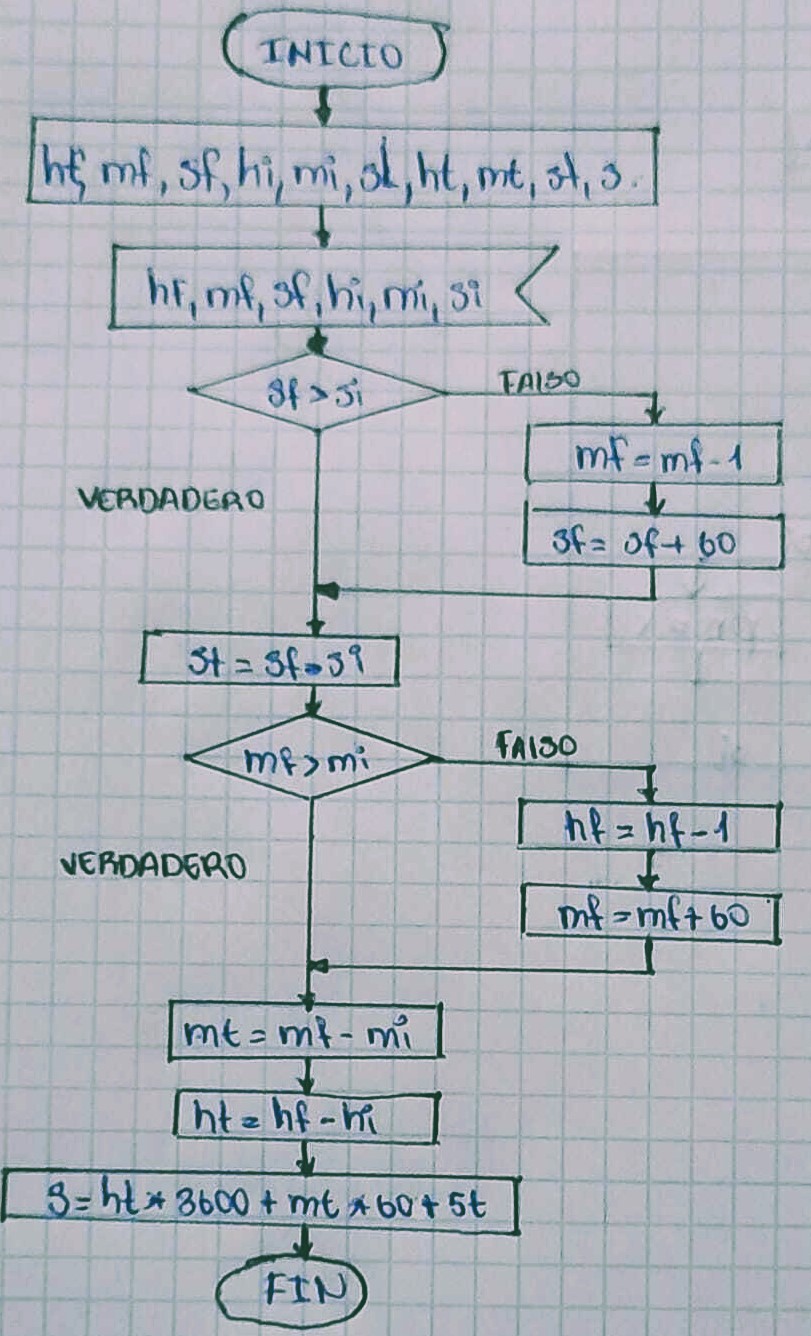 INICIO
hf, mf, sf, hi, mi, si, ht, mt, st, s.
hf, mf, sf, hi, mi, si
sf > si
FALSO
mf = mf - 1
VERDADERO
sf = sf + 60
st = sf - si
mf > mi
FALSO
hf = hf - 1
VERDADERO
mf = mf + 60
mt = mf - mi
ht = hf - hi
s = ht * 3600 + mt * 60 + st
FIN